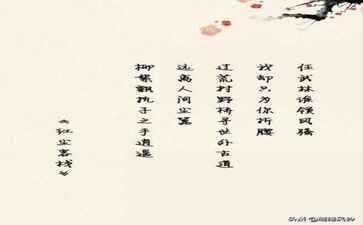 任武林谁领风骚
我却只为你折腰
过荒村野桥寻世外古道
远离人间尘嚣
柳絮飘执子之手逍遥
《红尘客栈》